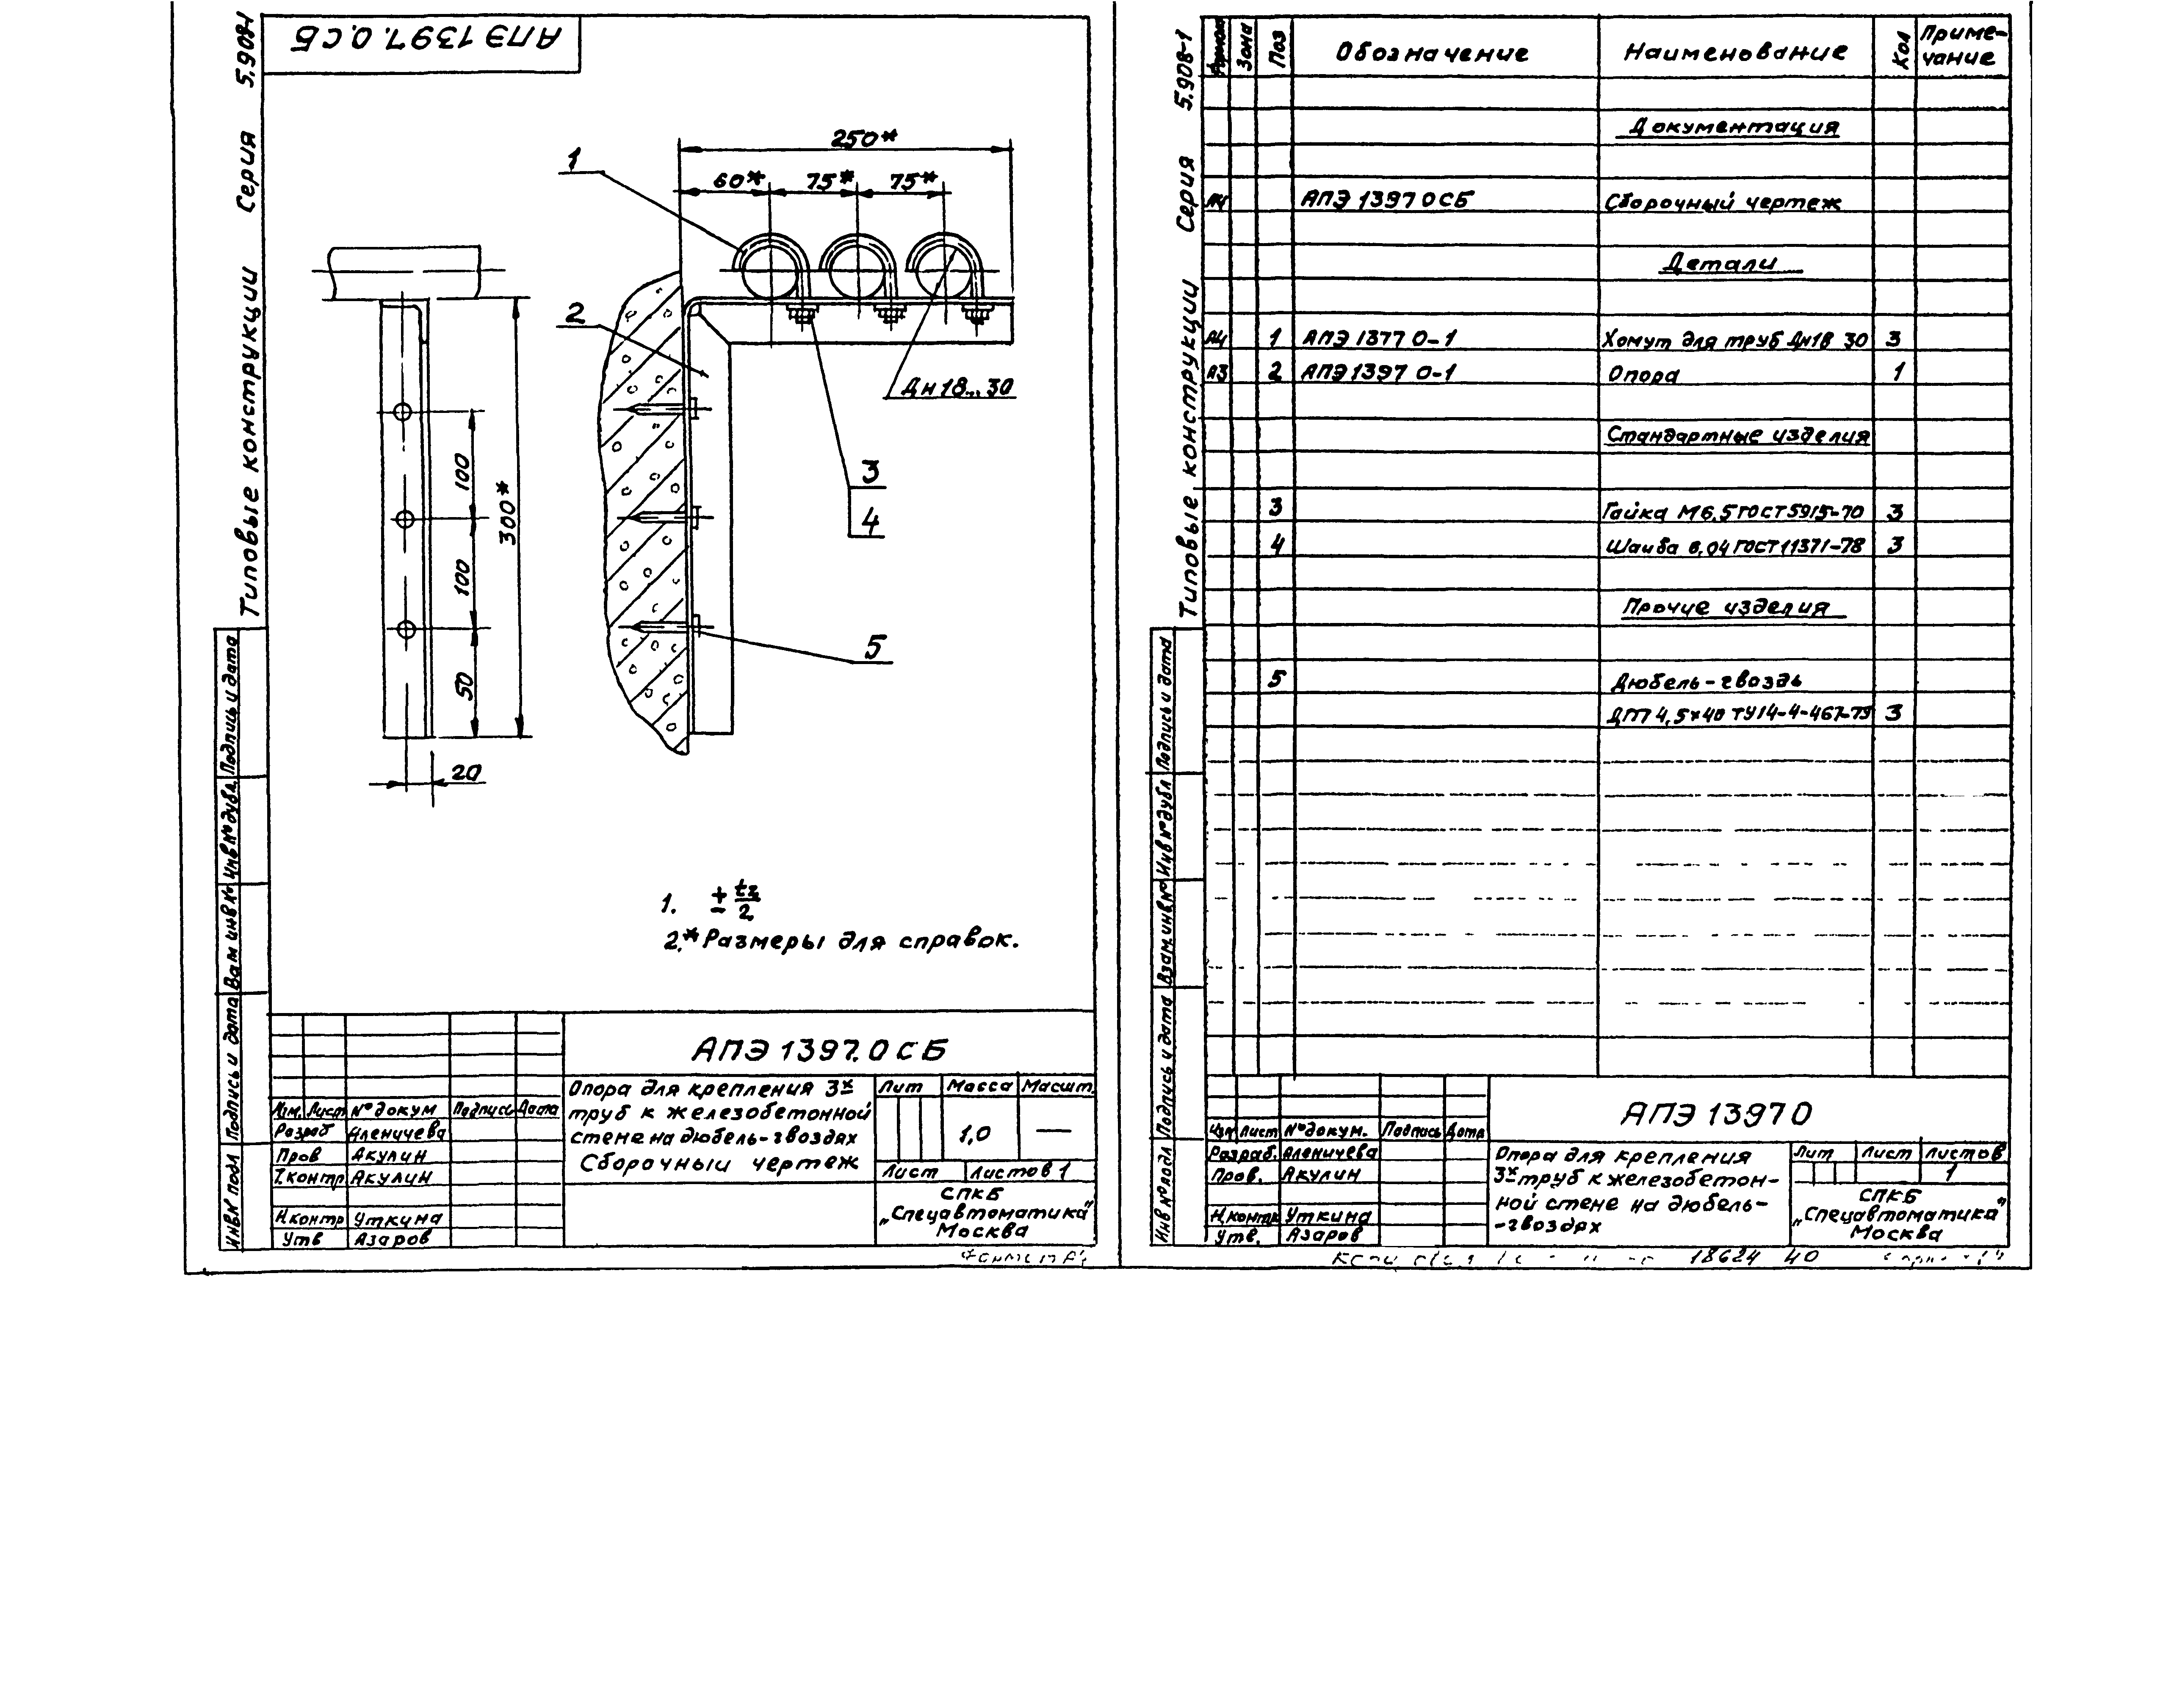 АПЭ 1397.0.СБ
Типовые конструкции Серия 5.908-1
250*
60* 75* 75*
1
2
Дн 18...30
3
4
5
100
100
50
300*
20
1. ± t2/2
2.* Размеры для справок.
Подпись и дата
Инв № дубл.
Вам инв №
Подпись и дата
Инв № подл
АПЭ 1397.0 СБ
Опора для крепления 3х
труб к железобетонной
стене на дюбель-гвоздях
Сборочный чертеж
Лит Масса Масшт.
1,0 —
Лист Листов 1
СПКБ
„Спецавтоматика"
Москва
Изм. Лист № докум Подпись Дата
Разраб Аленичева
Пров Акулин
Т.контр Акулин
Н.контр Уткина
Утв Азаров
Формат А4
Типовые конструкции Серия 5.908-1
Формат Зона Поз Обозначение Наименование Кол Приме-
чание
Документация
А4 АПЭ 1397 0 СБ Сборочный чертеж
Детали
А4 1 АПЭ 1377 0-1 Хомут для труб Дн18 30 3
А3 2 АПЭ 1397 0-1 Опора 1
Стандартные изделия
3 Гайка М6.5 ГОСТ 5915-70 3
4 Шайба 6.04 ГОСТ 11371-78 3
Прочие изделия
5 Дюбель-гвоздь
ДГП 4,5×40 ТУ14-4-467-73 3
Подпись и дата
Инв № дубл
Взам. инв №
Подпись и дата
Инв № подл
АПЭ 1397 0
Изм Лист № докум. Подпись Дата
Разраб. Аленичева
Пров. Акулин
Н.контр Уткина
Утв. Азаров
Опора для крепления
3х труб к железобетон-
ной стене на дюбель-
-гвоздях
Лит Лист Листов
1
СПКБ
„Спецавтоматика"
Москва
18624 40